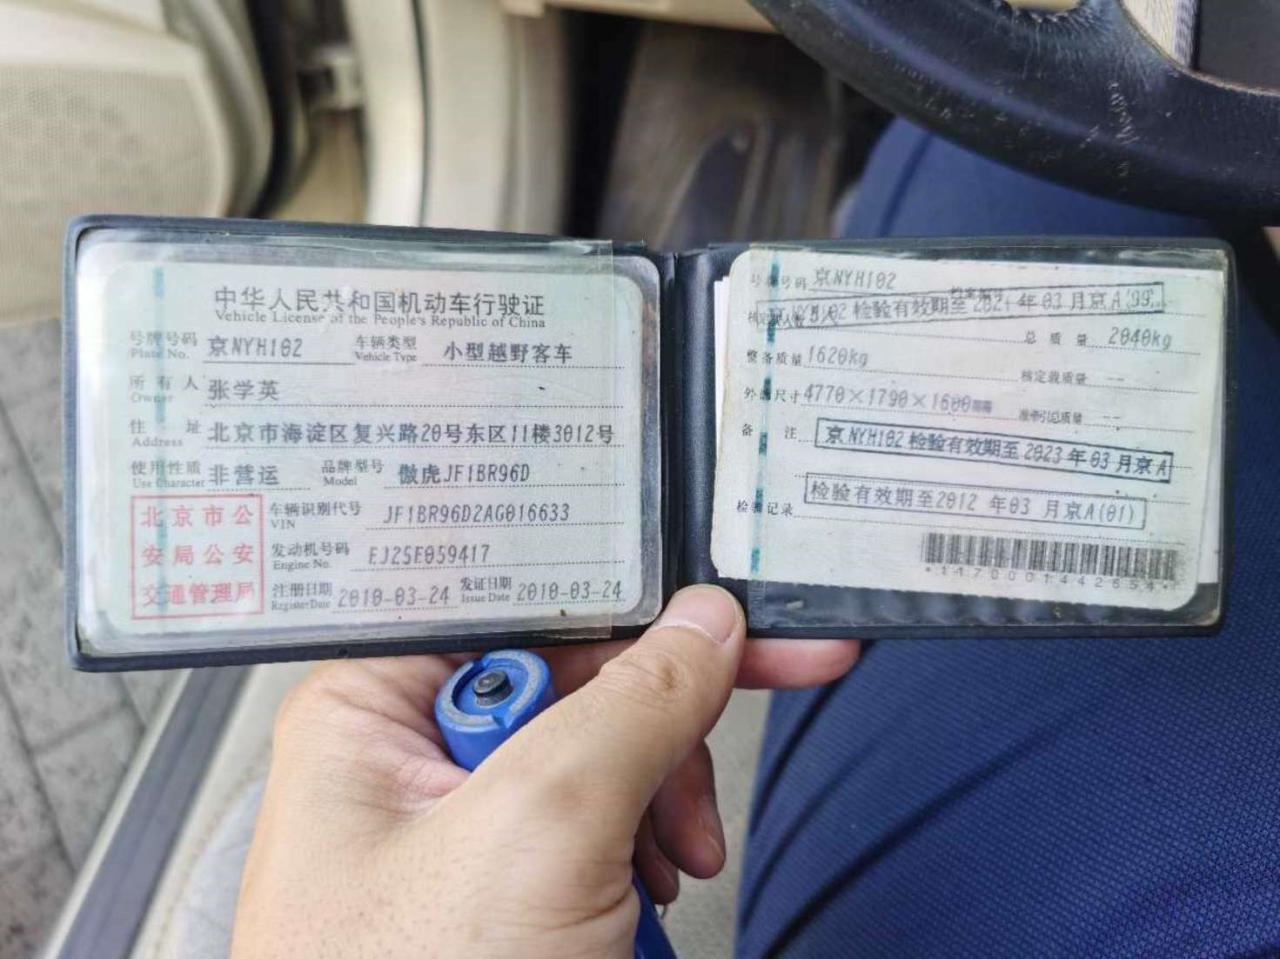 中华人民共和国机动车行驶证
Vehicle License of the People's Republic of China
号牌号码 Plate No. 京NYH102 车辆类型 Vehicle Type 小型越野客车
所有人 Owner 张学英
住址 Address 北京市海淀区复兴路20号东区11楼3012号
使用性质 Use Character 非营运 品牌型号 Model 傲虎JF1BR96D
车辆识别代号 VIN JF1BR96D2AG016633
发动机号码 Engine No. EJ25E059417
注册日期 Register Date 2010-03-24 发证日期 Issue Date 2010-03-24
北京市公
安局公安
交通管理局
号牌号码 京NYH102
检验有效期至2021年03月京A(99
总质量 2040kg
整备质量 1620kg 核定载质量 --
外廓尺寸 4770×1790×1600 准牵引总质量 --
备注 京NYH102检验有效期至2023年03月京A
检验记录 检验有效期至2012年03月京A(01)
*1170001442654*